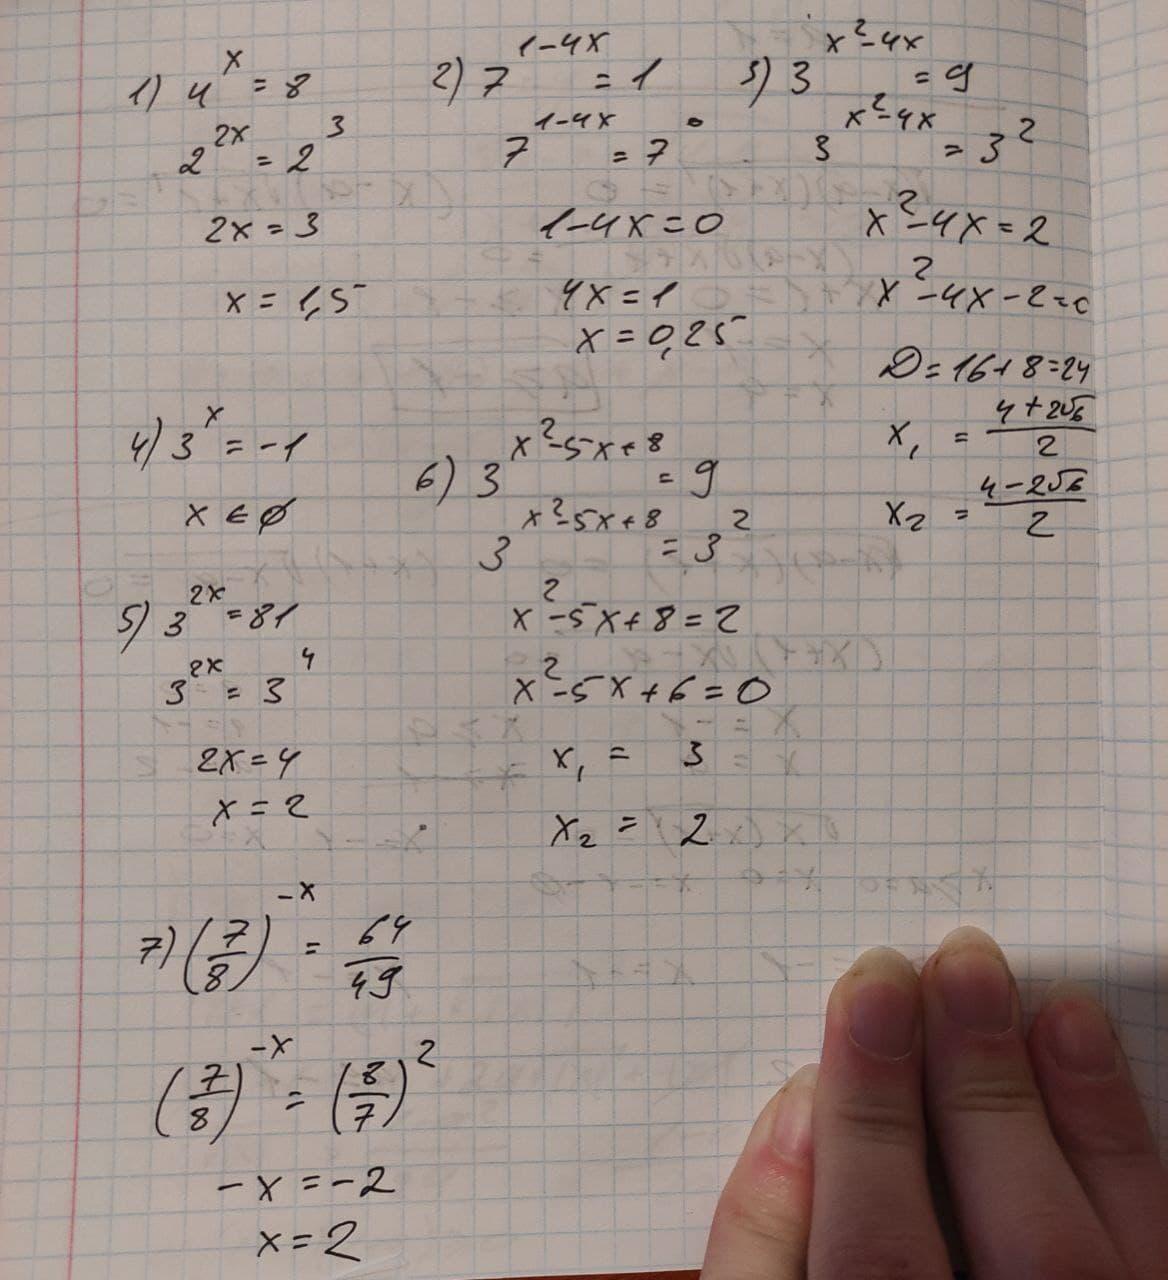 1) 4^x = 8
2^{2x} = 2^3
2x = 3
x = 1,5
2) 7^{1-4x} = 1
7^{1-4x} = 7^0
1-4x = 0
4x = 1
x = 0,25
3) 3^{x^2-4x} = 9
3^{x^2-4x} = 3^2
x^2-4x = 2
x^2-4x-2=0
D = 16+8=24
x_1 = \frac{4+2\sqrt{6}}{2}
x_2 = \frac{4-2\sqrt{6}}{2}
4) 3^x = -1
x ∈ ∅
5) 3^{2x} = 81
3^{2x} = 3^4
2x = 4
x = 2
6) 3^{x^2-5x+8} = 9
3^{x^2-5x+8} = 3^2
x^2-5x+8 = 2
x^2-5x+6 = 0
x_1 = 3
x_2 = 2
7) (\frac{7}{8})^{-x} = \frac{64}{49}
(\frac{7}{8})^{-x} = (\frac{8}{7})^2
-x = -2
x = 2